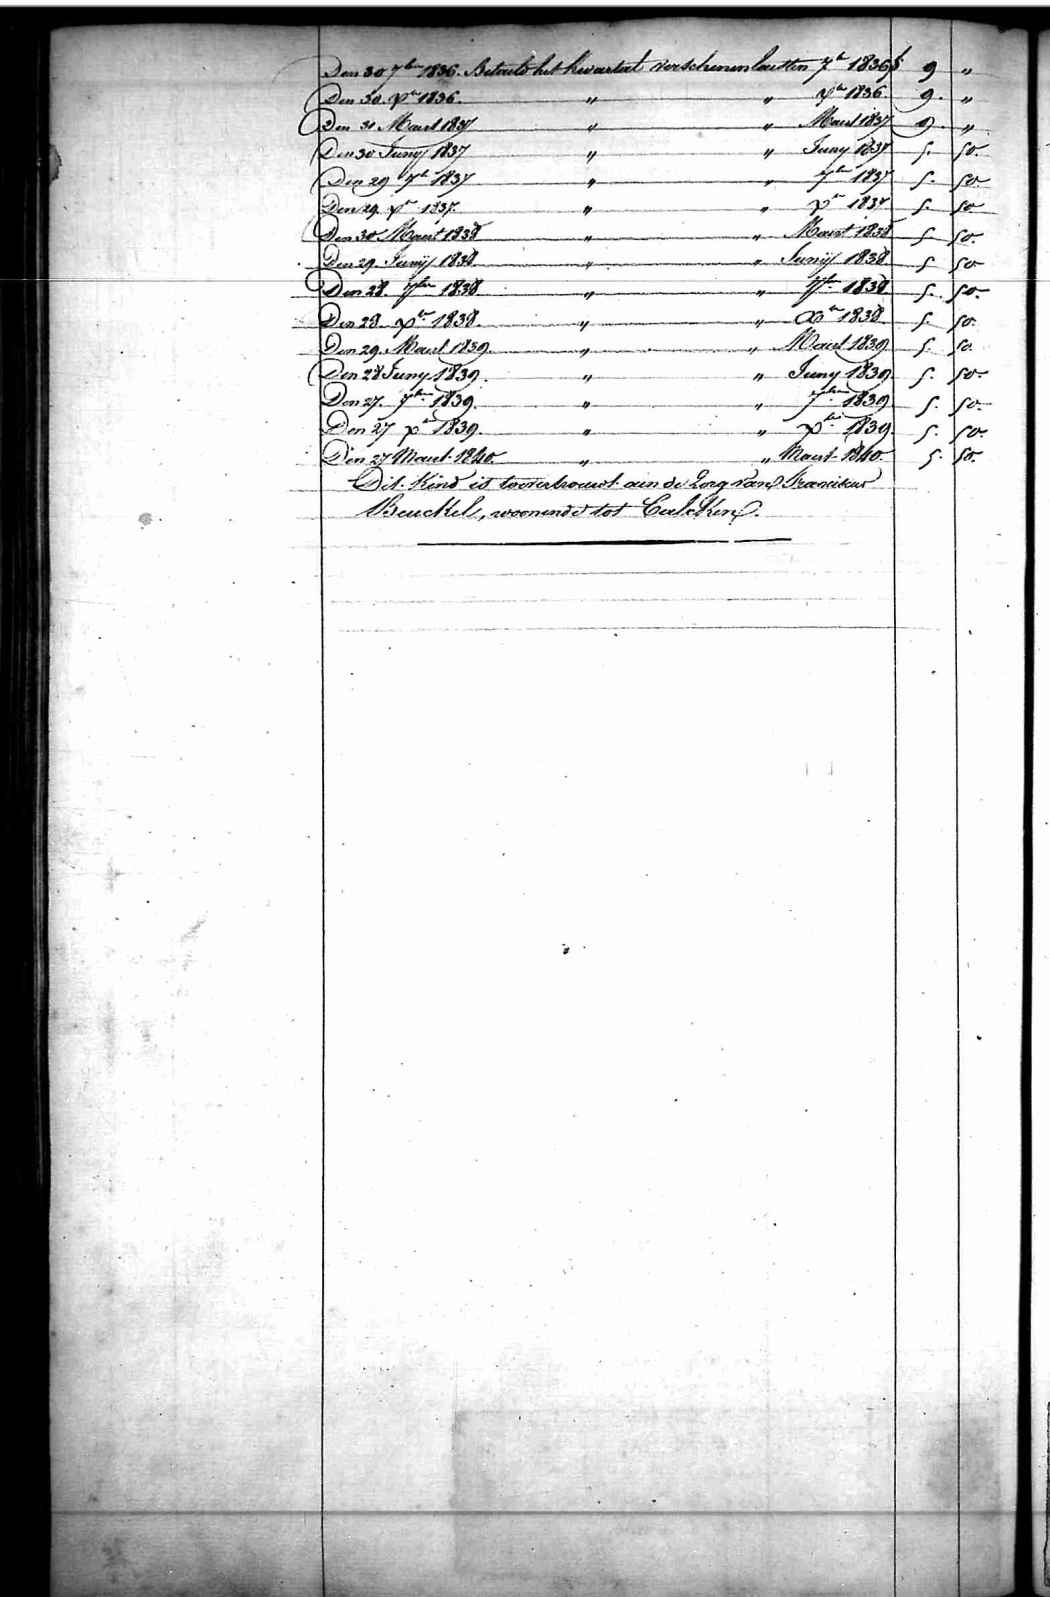 Den 30 7ber 1836. Betaeld het kwartael verschenen laetsten 7ber 1836 f 9 "
Den 30. Xber 1836. " " Xber 1836. 9. "
Den 31 Maert 1837 " " Maert 1837 9. "
Den 30 Juny 1837 " " Juny 1837 5. 50.
Den 29 7ber 1837 " " 7ber 1837 5. 50.
Den 29. Xber 1837. " " Xber 1837 5. 50
Den 30 Maert 1838 " " Maert 1838 5 50.
Den 29. Junij 1838. " " Junij 1838. 5 50
Den 28. 7ber 1838. " " 7ber 1838 5. 50.
Den 28. Xber 1838. " " Xber 1838. 5. 50.
Den 29. Maert 1839. " " Maert 1839 5. 50.
Den 28 Juny 1839. " " Juny 1839. 5. 50.
Den 27. 7ber 1839. " " 7ber 1839 5. 50.
Den 27 Xber 1839. " " Xber 1839. 5. 50.
Den 27 Maert 1840. " " Maert 1840 5. 50.
Dit Kind is toevertrouwt aen de Zorg van Franciscus
Beuckel, woonende tot Calcken.